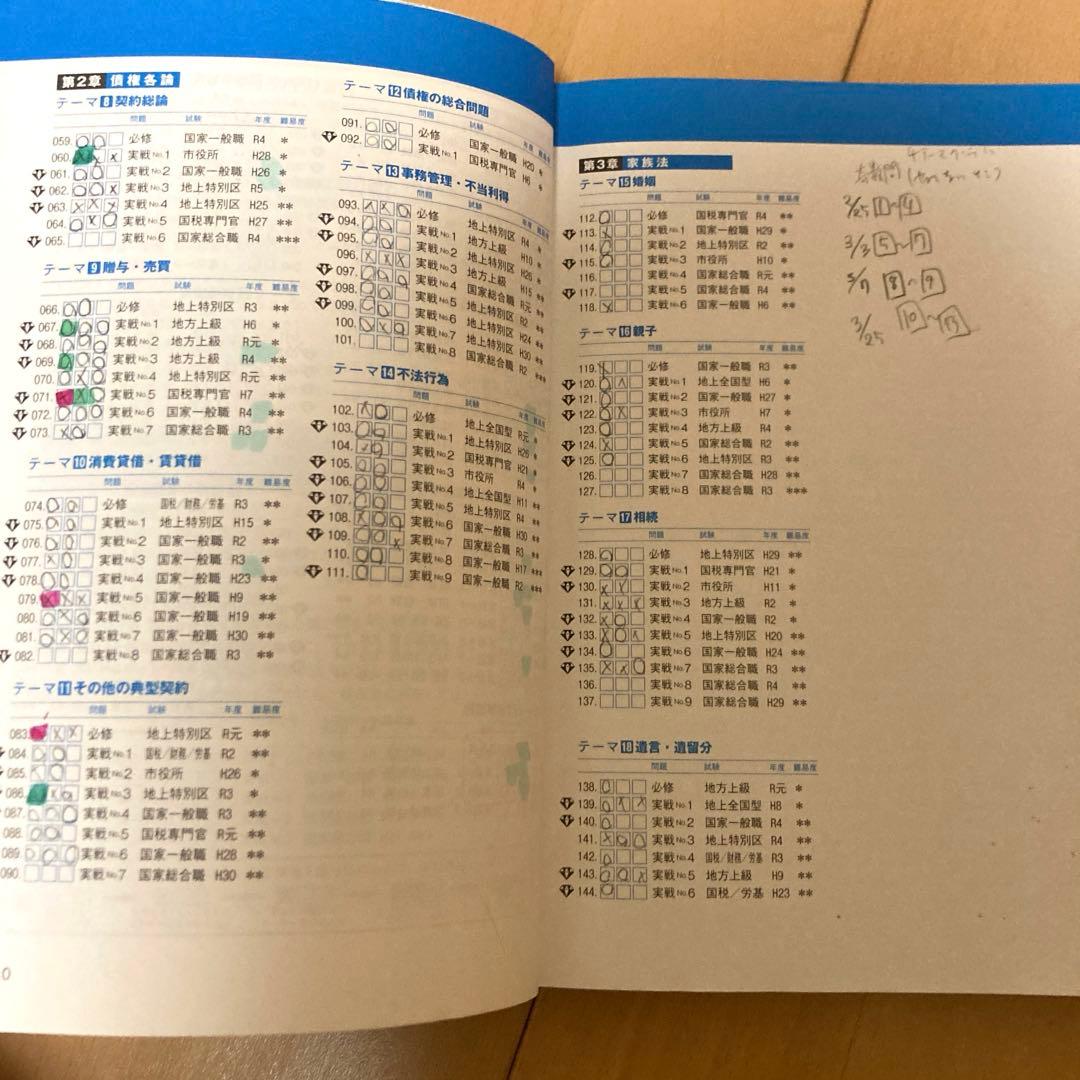 第2章 債権各論
テーマ8契約総論
問題 試験 年度 難易度
059. 必修 国家一般職 R4 *
060. 実戦No.1 市役所 H28 *
061. 実戦No.2 国家一般職 H26 *
062. 実戦No.3 地上特別区 R5 *
063. 実戦No.4 地上特別区 H25 **
064. 実戦No.5 国税専門官 H27 **
065. 実戦No.6 国家総合職 R4 ***
テーマ9贈与・売買
問題 試験 年度 難易度
066. 必修 地上特別区 R3 **
067. 実戦No.1 地方上級 H6 *
068. 実戦No.2 地方上級 R元 **
069. 実戦No.3 地方上級 R4 **
070. 実戦No.4 地上特別区 R元 **
071. 実戦No.5 国税専門官 H7 **
072. 実戦No.6 国家一般職 R4 **
073. 実戦No.7 国家総合職 R3 **
テーマ10消費貸借・賃貸借
問題 試験 年度 難易度
074. 必修 国税/財務/労基 R3 **
075. 実戦No.1 地上特別区 H15 *
076. 実戦No.2 国家一般職 R2 **
077. 実戦No.3 国家一般職 R3 *
078. 実戦No.4 国家一般職 H23 **
079. 実戦No.5 国家一般職 H9 **
080. 実戦No.6 国家一般職 H19 **
081. 実戦No.7 国家一般職 H30 **
082. 実戦No.8 国家総合職 R3 **
テーマ11その他の典型契約
問題 試験 年度 難易度
083. 必修 地上特別区 R元 **
084. 実戦No.1 国税/財務/労基 R2 **
085. 実戦No.2 市役所 H26 *
086. 実戦No.3 地上特別区 R3 *
087. 実戦No.4 国家一般職 R3 **
088. 実戦No.5 国税専門官 R元 **
089. 実戦No.6 国家一般職 H28 **
090 実戦No.7 国家総合職 H30 **
0
テーマ12債権の総合問題
問題 試験 年度 難易度
091. 必修 国家一般職 H20 *
092. 実戦No.1 国税専門官 H6 *
テーマ13事務管理・不当利得
問題 試験 年度 難易度
093. 必修 地上特別区 R4 *
094. 実戦No.1 地方上級 H10 *
095. 実戦No.2 地上特別区 H26 *
096. 実戦No.3 地方上級 H15 **
097. 実戦No.4 国家総合職 R4 **
098. 実戦No.5 地上特別区 R2 **
099. 実戦No.6 地上特別区 H24 **
100. 実戦No.7 地上特別区 H30 **
101. 実戦No.8 国家総合職 R2 ***
テーマ14不法行為
問題 試験 年度 難易度
102. 必修 地上全国型 R元 *
103. 実戦No.1 地上特別区 H26 *
104. 実戦No.2 国税専門官 H21 *
105. 実戦No.3 市役所 R4 *
106. 実戦No.4 地上全国型 H11 **
107. 実戦No.5 地上特別区 R4 **
108. 実戦No.6 国家一般職 H30 **
109. 実戦No.7 国家総合職 R3 **
110. 実戦No.8 国家一般職 H17 ***
111. 実戦No.9 国家一般職 R2 ***
第3章 家族法
テーマ15婚姻
問題 試験 年度 難易度
112. 必修 国税専門官 R4 **
113. 実戦No.1 国家一般職 H29 *
114. 実戦No.2 地上特別区 R2 **
115. 実戦No.3 市役所 H10 *
116. 実戦No.4 国家総合職 R元 **
117. 実戦No.5 国家総合職 R4 **
118. 実戦No.6 国家一般職 H6 **
テーマ16親子
問題 試験 年度 難易度
119. 必修 国家一般職 R3 **
120. 実戦No.1 地上全国型 H6 *
121. 実戦No.2 国家一般職 H27 *
122. 実戦No.3 市役所 H7 *
123. 実戦No.4 地方上級 R4 *
124. 実戦No.5 国家総合職 R2 **
125. 実戦No.6 地上特別区 R3 **
126. 実戦No.7 国家総合職 H28 **
127. 実戦No.8 国家総合職 R3 ***
テーマ17相続
問題 試験 年度 難易度
128. 必修 地上特別区 H29 **
129. 実戦No.1 国税専門官 H21 *
130. 実戦No.2 市役所 H11 *
131. 実戦No.3 地方上級 R2 *
132. 実戦No.4 国家一般職 R2 *
133. 実戦No.5 地上特別区 H20 **
134. 実戦No.6 国家一般職 H24 **
135. 実戦No.7 国家総合職 R3 **
136. 実戦No.8 国家総合職 R4 **
137. 実戦No.9 国家総合職 H29 **
テーマ18遺言・遺留分
問題 試験 年度 難易度
138. 必修 地方上級 R元 *
139. 実戦No.1 地上全国型 H8 *
140. 実戦No.2 国家一般職 R4 **
141. 実戦No.3 地上特別区 R4 **
142. 実戦No.4 国税/財務/労基 R3 **
143. 実戦No.5 地方上級 H9 **
144. 実戦No.6 国税/労基 H23 **
3/25 1~4
3/3 5~7
8~9
3/25 10~13